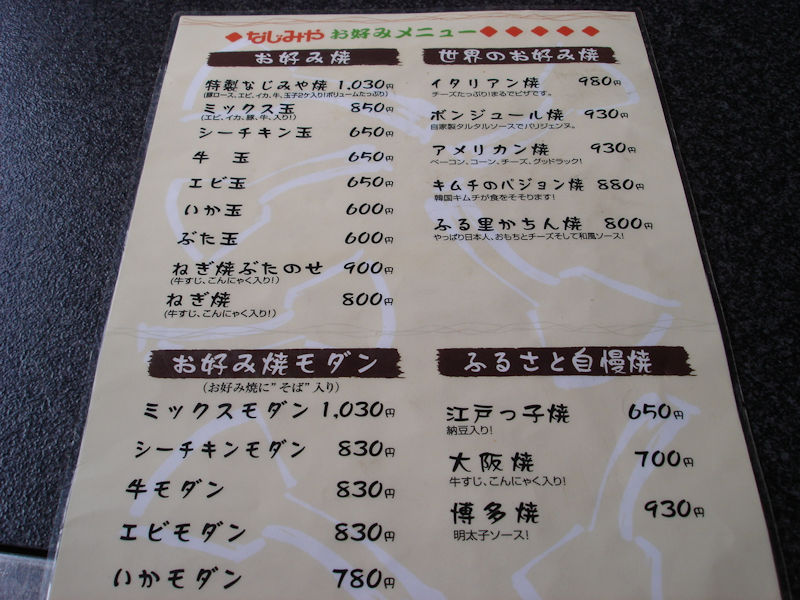 なじみや お好みメニュー
お好み焼
特製なじみや焼 1,030円
(豚ロース、エビ、イカ、牛、玉子2ケ入り!ボリュームたっぷり)
ミックス玉 850円
(エビ、イカ、豚、牛、入り!)
シーチキン玉 650円
牛 玉 650円
エビ玉 650円
いか玉 600円
ぶた玉 600円
ねぎ焼ぶたのせ 900円
(牛すじ、こんにゃく入り!)
ねぎ焼 800円
(牛すじ、こんにゃく入り!)
世界のお好み焼
イタリアン焼 980円
チーズたっぷり!まるでピザです。
ボンジュール焼 930円
自家製タルタルソースでパリジェンヌ。
アメリカン焼 930円
ベーコン、コーン、チーズ、グッドラック!
キムチのパジョン焼 880円
韓国キムチが食をそそります!
ふる里かちん焼 800円
やっぱり日本人、おもちとチーズそして和風ソース!
お好み焼モダン
(お好み焼に"そば"入り)
ミックスモダン 1,030円
シーチキンモダン 830円
牛モダン 830円
エビモダン 830円
いかモダン 780円
ふるさと自慢焼
江戸っ子焼 650円
納豆入り!
大阪焼 700円
牛すじ、こんにゃく入り!
博多焼 930円
明太子ソース!